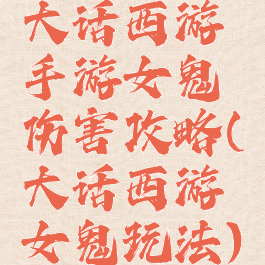 大话西游
手游女鬼
伤害攻略(
大话西游
女鬼玩法)